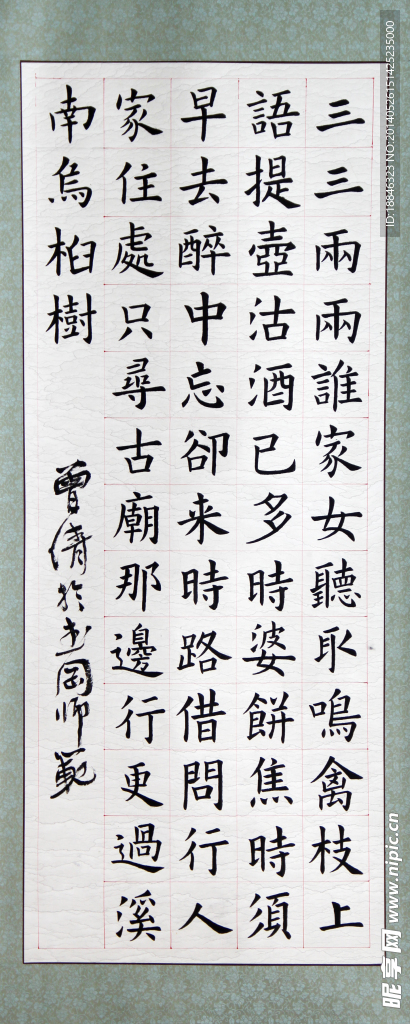 三三兩兩誰家女聽取鳴禽枝上
語提壺沽酒已多時婆餅焦時須
早去醉中忘卻来時路借問行人
家住處只尋古廟那邊行更過溪
南烏桕樹
曾於岡师範
ID:18846323 NO:20140526151425235000
昵享网 www.nipic.cn